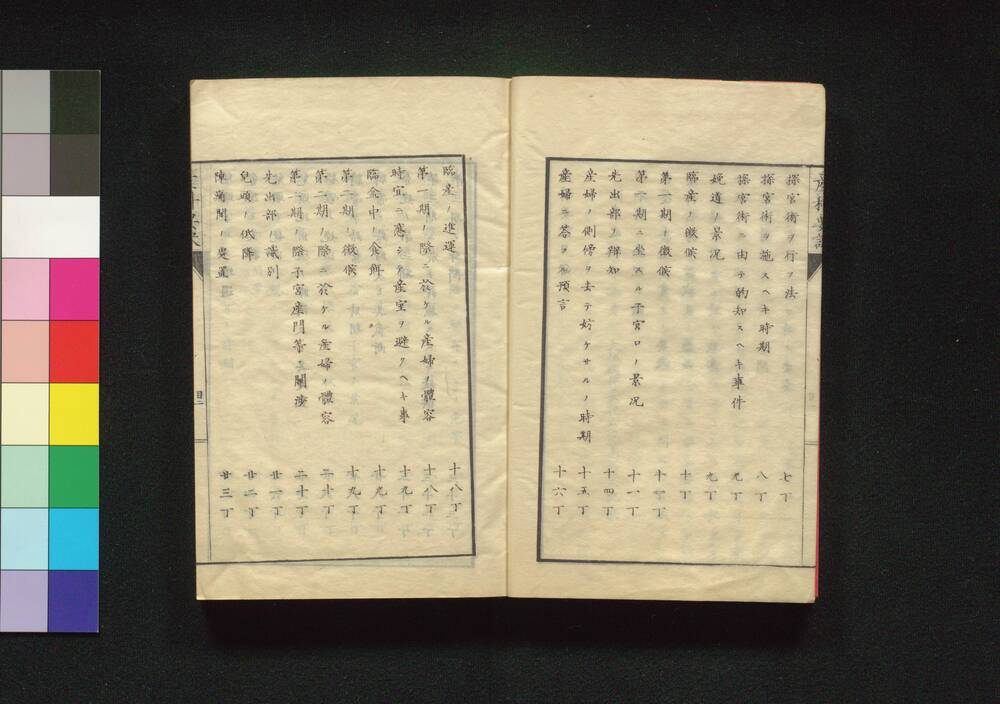 探宮術ヲ行フ法 七丁
探宮術ヲ施スヘキ時期 八丁
探宮術ニ由テ的知スヘキ事件 九丁
娩道ノ景況 九丁
臨産ノ徴候 十丁
第一期ノ徴候 十一丁
第一期ニ生スル子宮口ノ景況 十一丁
先出部ノ辨知 十四丁
産婦ノ側傍ヲ去テ妨ケサルノ時期 十五丁
産婦ニ答フル預言 十六丁
臨産ノ進運 十八丁
第一期ノ際ニ於ケル産婦ノ體容 十八丁
時宜ニ應シテ産室ヲ避クヘキ事 十九丁
臨産中ノ食餌 十九丁
第二期ノ徴候 十九丁
第二期ノ際ニ於ケル産婦ノ體容 二十丁
第二期ノ際子宮産門等ニ關渉 二十丁
先出部ノ識別 廿一丁
兒頭ノ低降 廿二丁
陣痛間ノ處置 廿三丁
目二